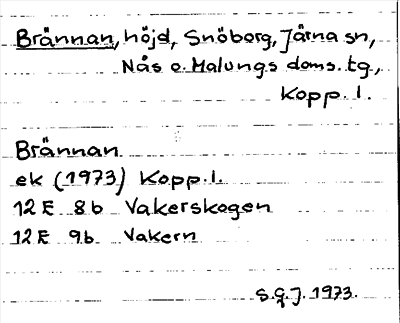 Brännan, höjd, Snöborg, Järna sn,
Nås o. Malungs doms. tg.,
Kopp. l.
Brännan
ek (1973) Kopp. l.
12 E 8b Vakerskogen
12 E 9b Vakern
S.G.J. 1973.